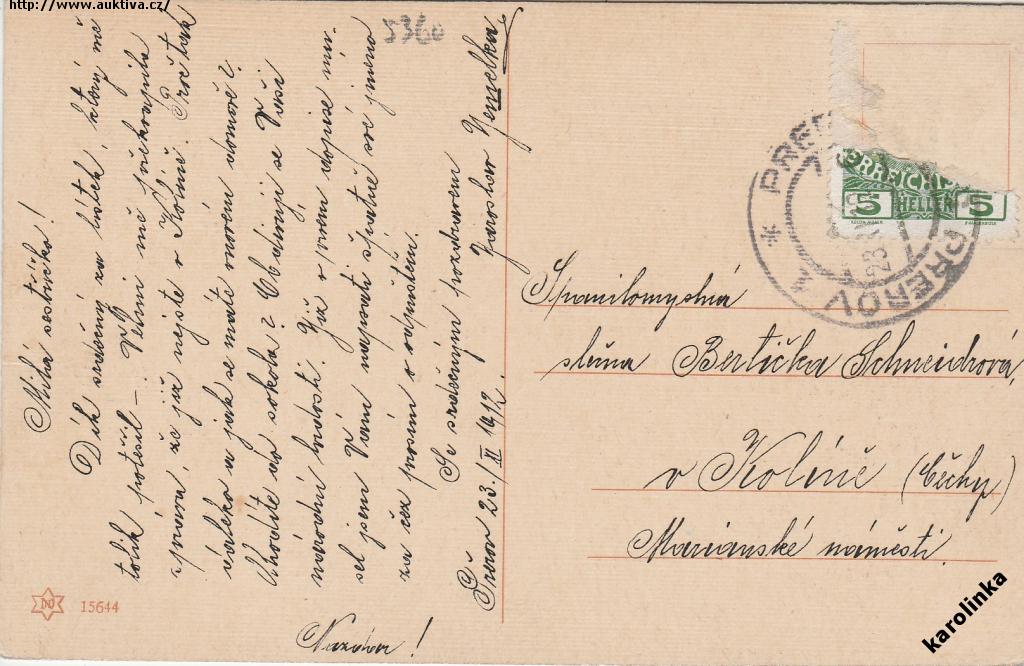 http://www.auktiva.cz/
5360
Milá sestřičko!
Dík srdečný za lístek, který mě
tolik potěšil –. Velmi mě překvapila
zpráva, že již nejste v Kolíně. Proč tak
daleko a jak se máte v novém domově?
Chodíte do sokola? Obdivuji se Vaší
národní hrdosti. Já v prvém dopise mu-
sel jsem Vám napsati špatně své jméno
za což prosím o odpuštění.
Se srdečným pozdravem
Jaroslav Nemelka
Přerov 23./II 1912.
Nazdar!
PŘEROV 1
23
ORREICHI
5 HELLER 5
Spanilomyslná
slečna Bertička Schneidrová,
v Kolíně (Čechy)
Marianské náměstí.
15644
karolinka